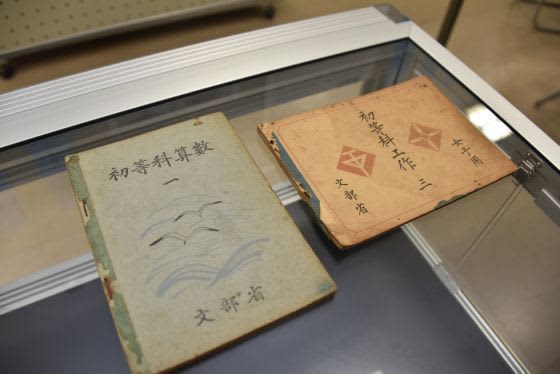 初等科算數
一
文部省
初等科工作 三
女子用
文部省